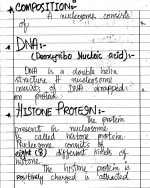 COMPOSITION:-
A nucleosome consists
of
DNA:-
(Deoxyribo Nucleic acid):-
DNA is a double helix
structure. A nucleosome
consists of DNA wrapped
on protein.
HISTONE PROTEIN:-
The protein
present in nucleosome
is called histone protein.
Nucleosome consists of
eight (8) different kinds of
histone
The histone protein is
positively charged is attracted